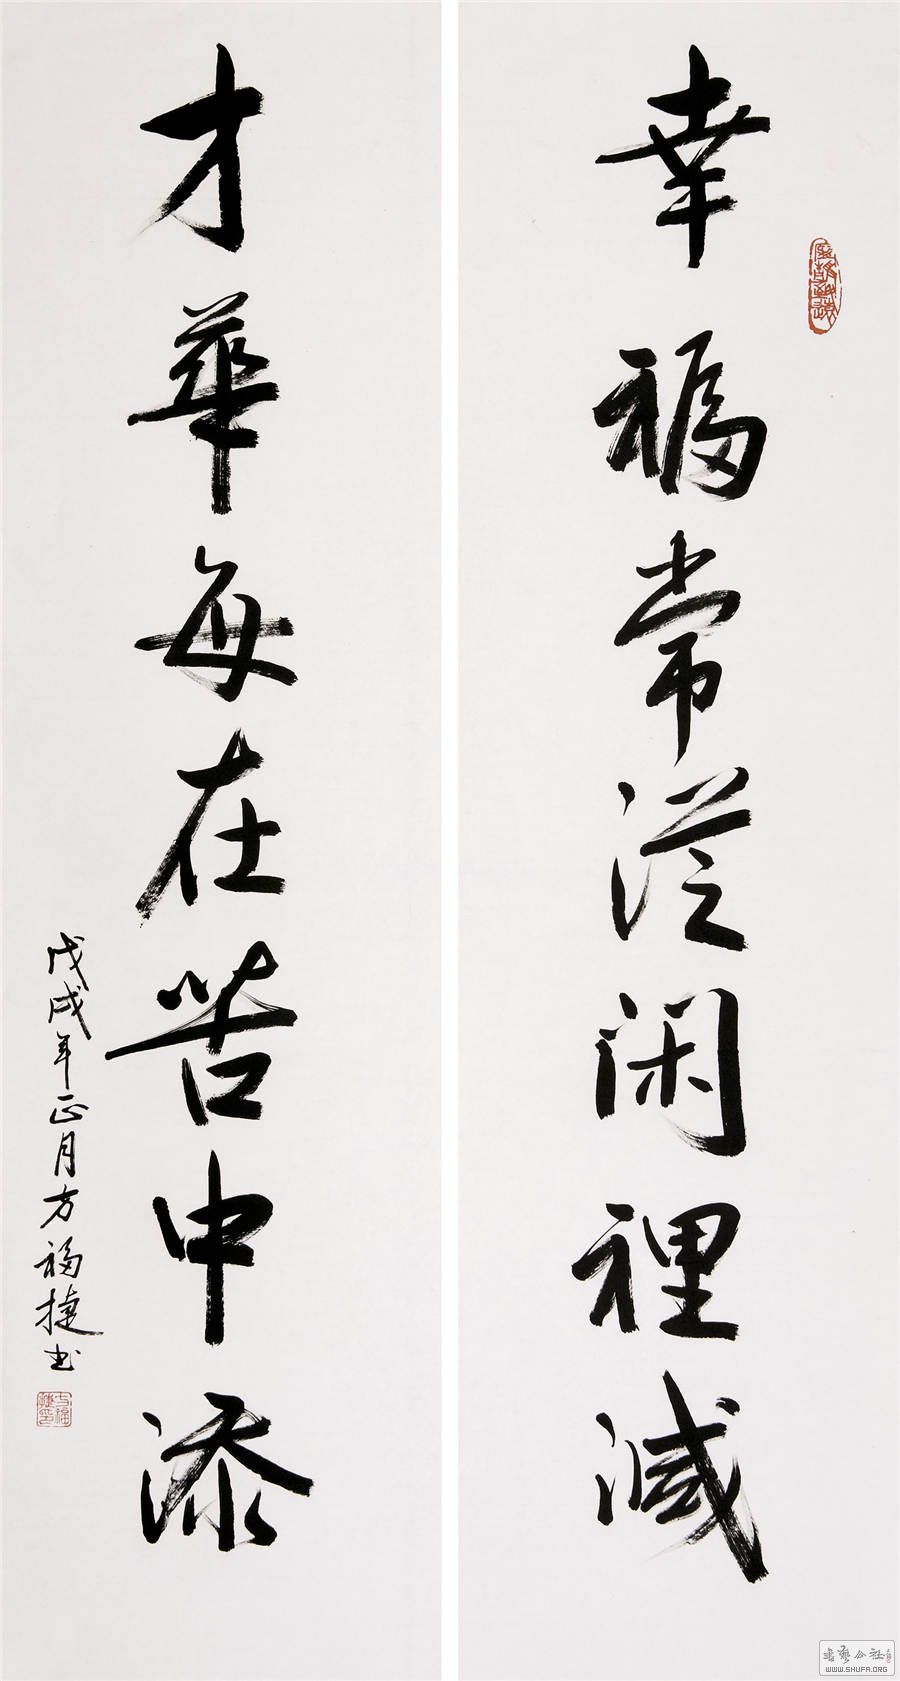 幸福常從闲裡減
才華每在苦中添
戊戌年正月方福捷书
方福捷印
書艺公社
WWW.SHUFA.ORG